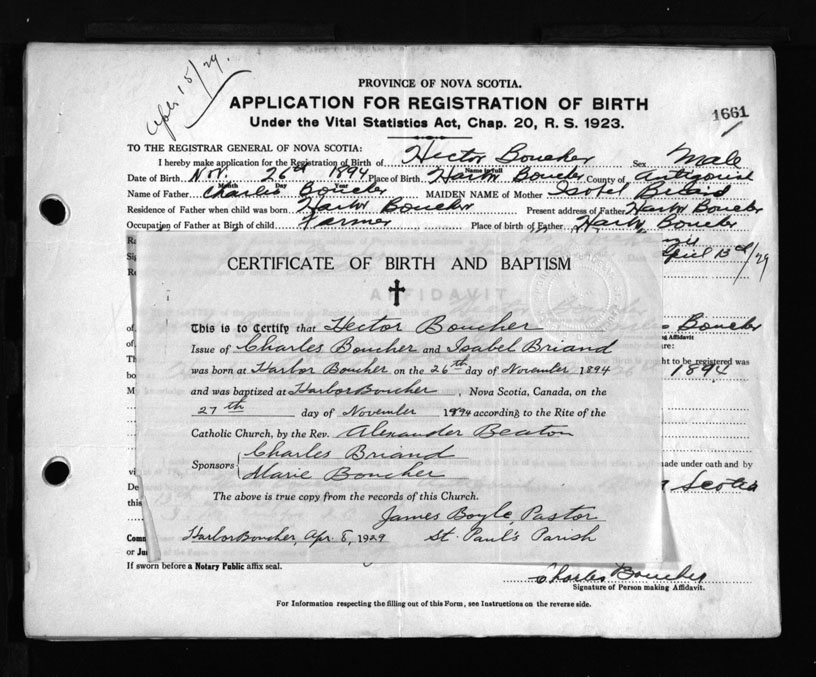 Apl. 15/29.
PROVINCE OF NOVA SCOTIA.
APPLICATION FOR REGISTRATION OF BIRTH
1661
Under the Vital Statistics Act, Chap. 20, R. S. 1923.
TO THE REGISTRAR GENERAL OF NOVA SCOTIA:
I hereby make application for the Registration of Birth of Hector Boucher Sex Male
Name in full
Date of Birth Nov. 26th 1894 Place of Birth Harbr Boucher County of Antigonish
Month Day Year
Name of Father Charles Boucher MAIDEN NAME of Mother Isabel Briand
Residence of Father when child was born Harbr Boucher Present address of Father Harbr Boucher
Occupation of Father at Birth of child Farmer Place of birth of Father Harbr Boucher
April 13th/29
CERTIFICATE OF BIRTH AND BAPTISM
AFFIDAVIT
This is to Certify that Hector Boucher
Issue of Charles Boucher and Isabel Briand
was born at Harbor Boucher on the 26th day of November 1894
and was baptized at Harbor Boucher, Nova Scotia, Canada, on the
27th day of November 1894 according to the Rite of the
Catholic Church, by the Rev. Alexander Beaton
Sponsors Charles Briand
Marie Boucher
The above is true copy from the records of this Church.
James Boyle, Pastor
Harbor Boucher, Apr. 8, 1929 St. Paul's Parish
Boucher
Affidavit
ht to be registered was
1894
made under oath and by
Scotia
this
or
If sworn before a Notary Public affix seal.
Charles Boucher
Signature of Person making Affidavit.
For Information respecting the filling out of this Form, see Instructions on the reverse side.